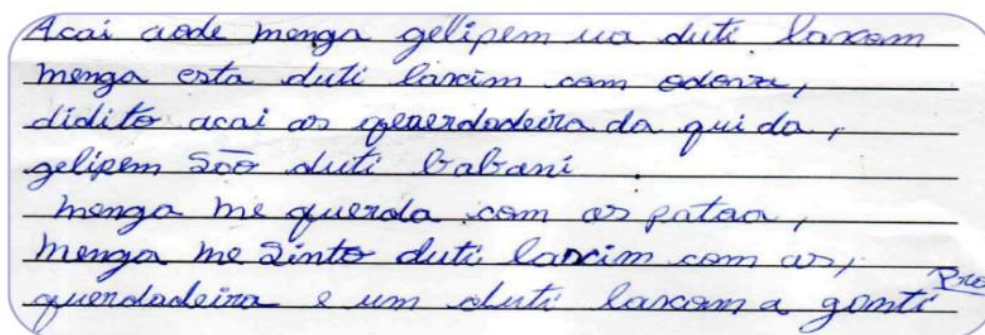 Acai aode menga gelipem ua duti laxom
menga esta duti laxim com odonza,
didito acai as querdadeira da qui da,
gelipem São duti babani
menga me querda com as patăa,
menga me sinto duti laxcim com as,
querdadeira e um duti laxom a gonti
Pro